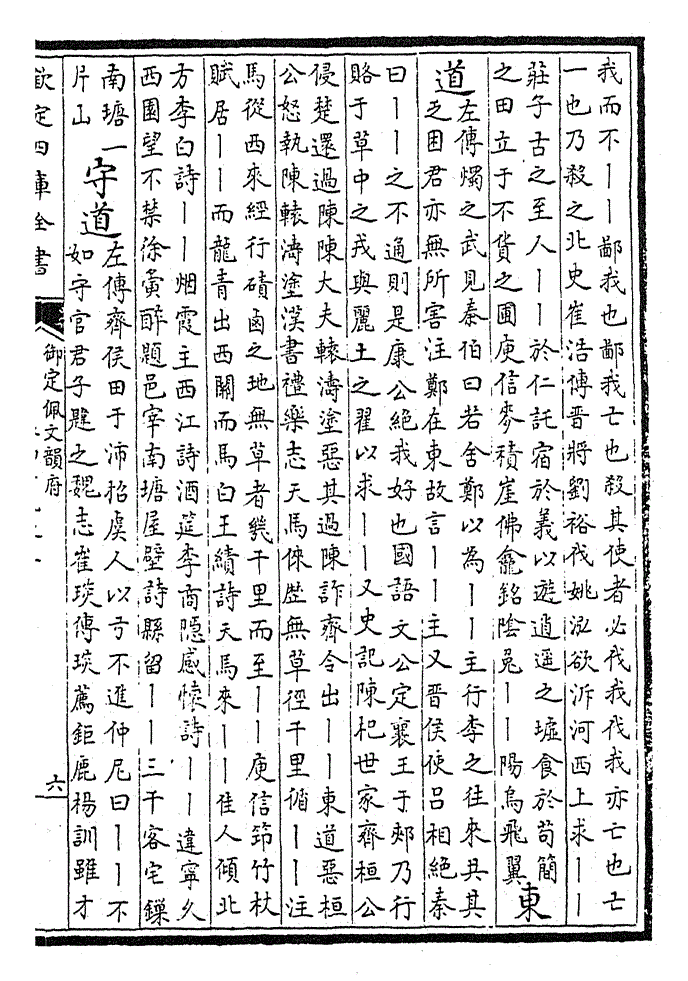 我而不丨丨鄙我也鄙我亡也殺其使者必伐我伐我亦亡也亡
一也乃殺之北史崔浩傳晉將劉裕伐姚泓欲泝河西上求丨丨
莊子古之至人丨丨於仁託宿於義以遊逍遥之墟食於苟簡
之田立于不貸之圃庾信麥積崖佛龕銘隂兔丨丨陽烏飛翼
東
道
左傳燭之武見秦伯曰若舍鄭以為丨丨主行李之往來共其
之困君亦無所害注鄭在東故言丨丨主又晉侯使吕相絶秦
曰丨丨之不通則是康公絶我好也國語文公定襄王于郟乃行
賂于草中之戎與麗土之翟以求丨丨又史記陳杞世家齊桓公
侵楚還過陳陳大夫轅濤塗惡其過陳詐齊令出丨丨東道惡桓
公怒執陳轅濤塗漢書禮樂志天馬徠歴無草徑千里循丨丨注
馬從西來經行磧鹵之地無草者幾千里而至丨丨庾信笻竹杖
賦居丨丨而龍青出西關而馬白王績詩天馬來丨丨佳人傾北
方李白詩丨丨烟霞主西江詩酒筵李商隠感懐詩丨丨違寧久
西園望不禁徐夤酔題邑宰南塘屋壁詩縣留丨丨三千客宅鏁
南塘一
片山
守道
左傳齊侯田于沛招虞人以弓不進仲尼曰丨丨不
如守官君子韙之魏志崔琰傳琰薦鉅鹿楊訓雖才
欽定四庫全書
御定佩文韻府
六